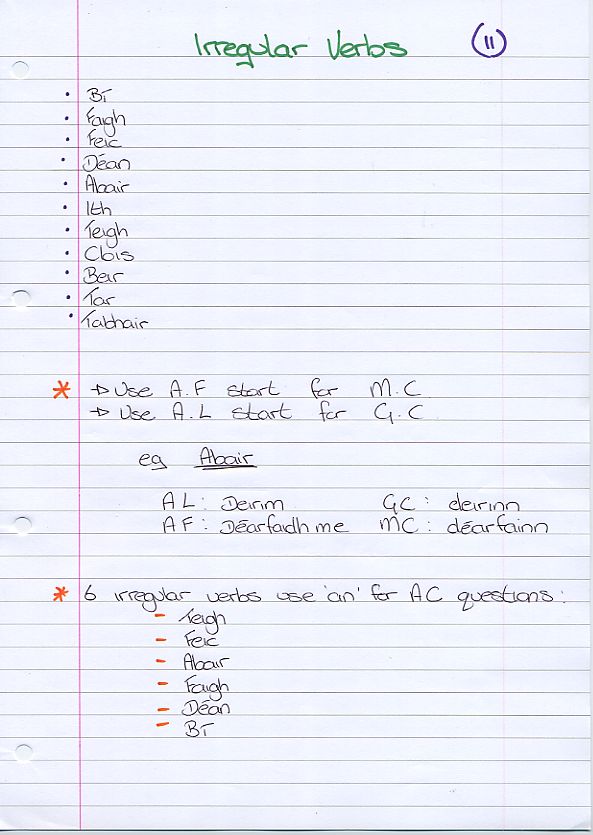 Irregular Verbs 11
• Bí
• Faigh
• Feic
• Déan
• Abair
• Ith
• Teigh
• Clois
• Beir
• Tar
• Tabhair
* → Use A.F start for M.C
→ Use A.L start for G.C
eg Abair
AL : Deirim GC : deirinn
AF : Déarfaidh me MC : déarfainn
* 6 irregular verbs use 'an' for AC questions :
- Teigh
- Feic
- Abair
- Faigh
- Déan
- Bí